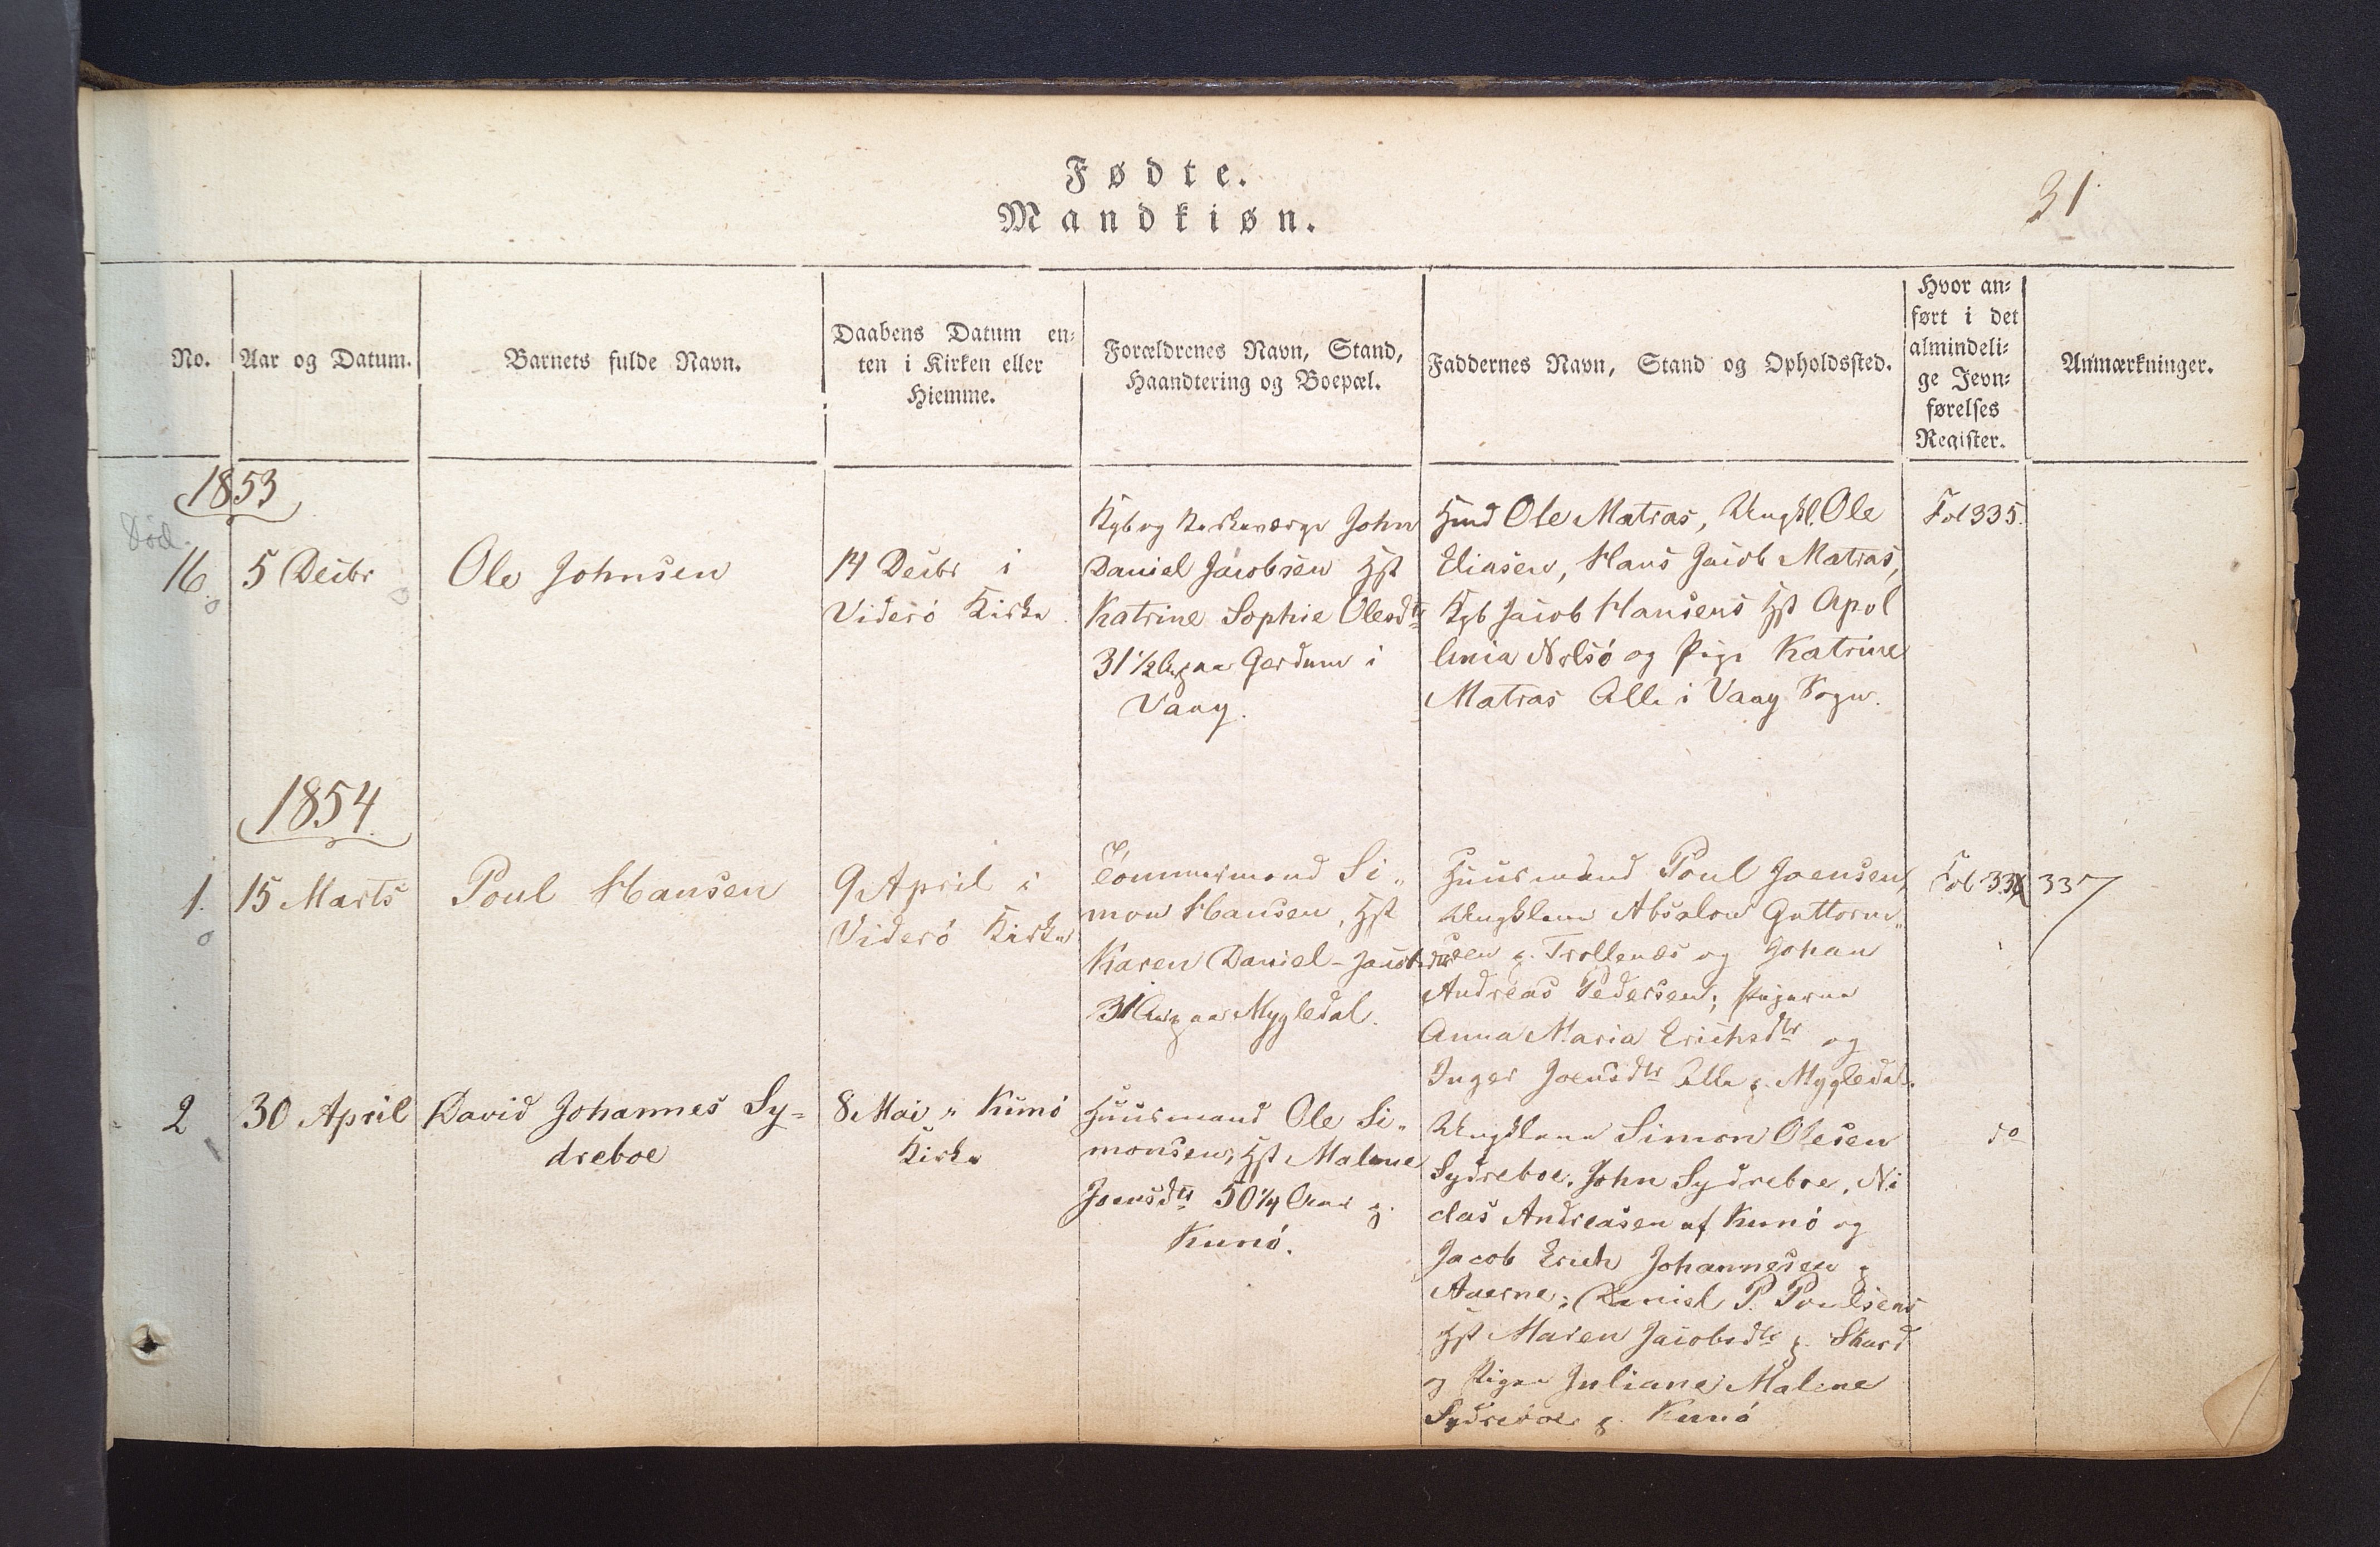 Fødte.
Mandkiøn.
31
No.
Aar og Datum.
Barnets fulde Navn.
Daabens Datum en-
ten i Kirken eller
Hiemme.
Forældrenes Navn, Stand,
Haandtering og Boepæl.
Faddernes Navn, Stand og Opholdssted.
Hvor an-
ført i det
almindeli-
ge Jevn-
førelses
Register.
Anmærkninger.
1853
Død.
16.
5 Decbr
Ole Johnsen
14 Decbr i
Viderö Kirke
Kgb og Kirkeværge John
Daniel Jacobsen Hst
Katrine Sophie Olesdtr
31 1/2 Gerdum i
Vaag.
Hmd Ole Matras, Ungkl. Ole
Eliasen, Hans Jacob Matras,
Kgb Jacob Hansens Hst Apol
lonia Nolsö og Pige Katrine
Matras Alle i Vaag Sogn.
Fol 335.
1854.
1.
15 Marts
Poul Hansen
9 April i
Viderö Kirke
Tömmermand Si-
mon Hansen, Hst
Karen Daniel-Jacobsdtr
31 Aar paa Mygledal.
Huusmand Poul Joensen,
Ungkarlene Absalon Guttorm-
sen p. Trollenæs og Johan
Andreas Pedersen; Pigerne
Anna Maria Erichsdtr og
Inger Joensdtr Alle p. Mygledal.
Fol
337
2
30 April
David Johannes Sy-
dreboe
8 Mai " Kunö
Kirke
Huusmand Ole Si-
monsen, Hst Malene
Joensdtr 50 1/4 Aar p.
Kunö.
Ungklane Simon Olesen
Sydreboe, John Sydreboe, Ni
clas Andreasen af Kunö og
Jacob Erich Johannesen p
Aaerne; Daniel P. Poulsens
Hst Maren Jacobsdtr p. Skard
og Pigen Juliane Malene
Sydreboe p. Kunö
do